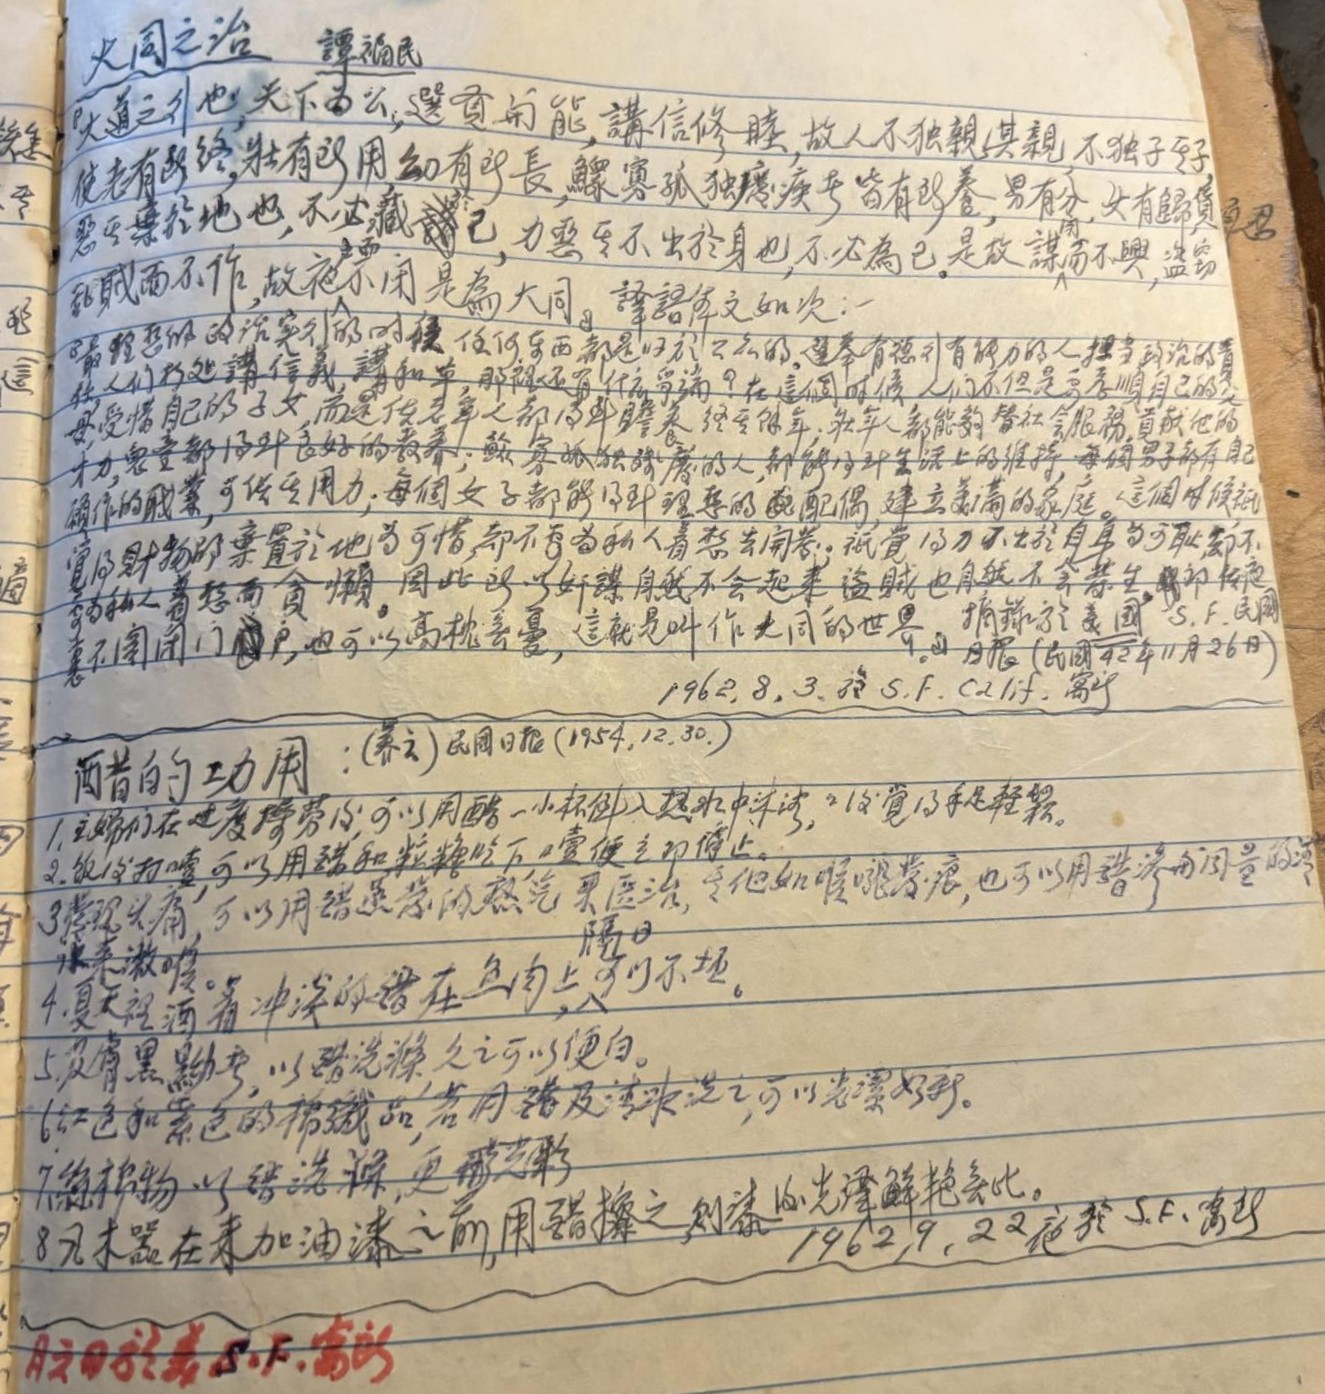 大同之治 譚福民
「大道之行也，天下為公，選賢與能，講信修睦，故人不独親其親，不独子其子，
使老有所終，壯有所用，幼有所長，鰥寡孤独廢疾者皆有所養，男有分，女有歸，貨
惡其棄於地也，不必藏諸己，力惡其不出於身也，不必為己。是故謀閉而不興，盜窃
乱賊而不作，故夜戶而不闭是為大同」譯語体文如次：—
「最理想的政治实行的时候任何东西都是归於公么的。選举有德行有能力的人担当政治的責
任，人们相处講信義，講和平，那裡还有什麽爭端？在這個时候人们不但是孝順自己的父
母，受惜自己的子女，而是使老年人都得到贍养终其餘年；壮年人都能夠替社会服務，貢献他的
才力，兒童都得到良好的教养；鰥寡孤独殘廢的人，都能得到生活上的維持，每個男子都有自己
願作的職業，可供其用力；每個女子都能得到理想的配偶，建立美满的家庭。這個时候祇
覺得財物的棄置於地为可惜，却不专为私人着想去開发。祇覺得力不出於自身为可耻，却不
专为私人着想而貪懶。因此所以奸謀自然不会起来，盜賊也自然不会发生。即使夜
裏不関闭门户，也可以高枕无憂，這就是叫作大同的世界。」摘錄於美國 S.F. 民國
日报（民國42年11月26日）
1962. 8. 3. 於 S.F. Calif. 寓所
醋的功用：（养云）民國日报（1954. 12. 30.）
1. 主婦们在过度操劳后，可以用醋一小杯倒入热水中沐浴，浴后覺得手足轻鬆。
2. 飯后打噎，可以用醋和粒糖吃下，噎便立即停止。
3. 发现头痛，可以用醋蒸发的熱气来医治，其他如喉嚨发痕，也可以用醋滲与同量的冷
水来漱喉。
4. 夏天裡洒着冲淡的醋在鱼肉上，隔日可以不坏。
5. 皮膚黑黝者，以醋洗滌久之可以便白。
6. 红色和紫色的棉織品，若用醋及清水洗之，可以光潔如新。
7. 丝棉物以醋洗滌，更形光彩
8. 凡木器在未加油漆之前，用醋擦之，则漆的光澤鮮艳无比。
1962, 9, 22 夜於 S.F. 寓所
S.F. 寓所